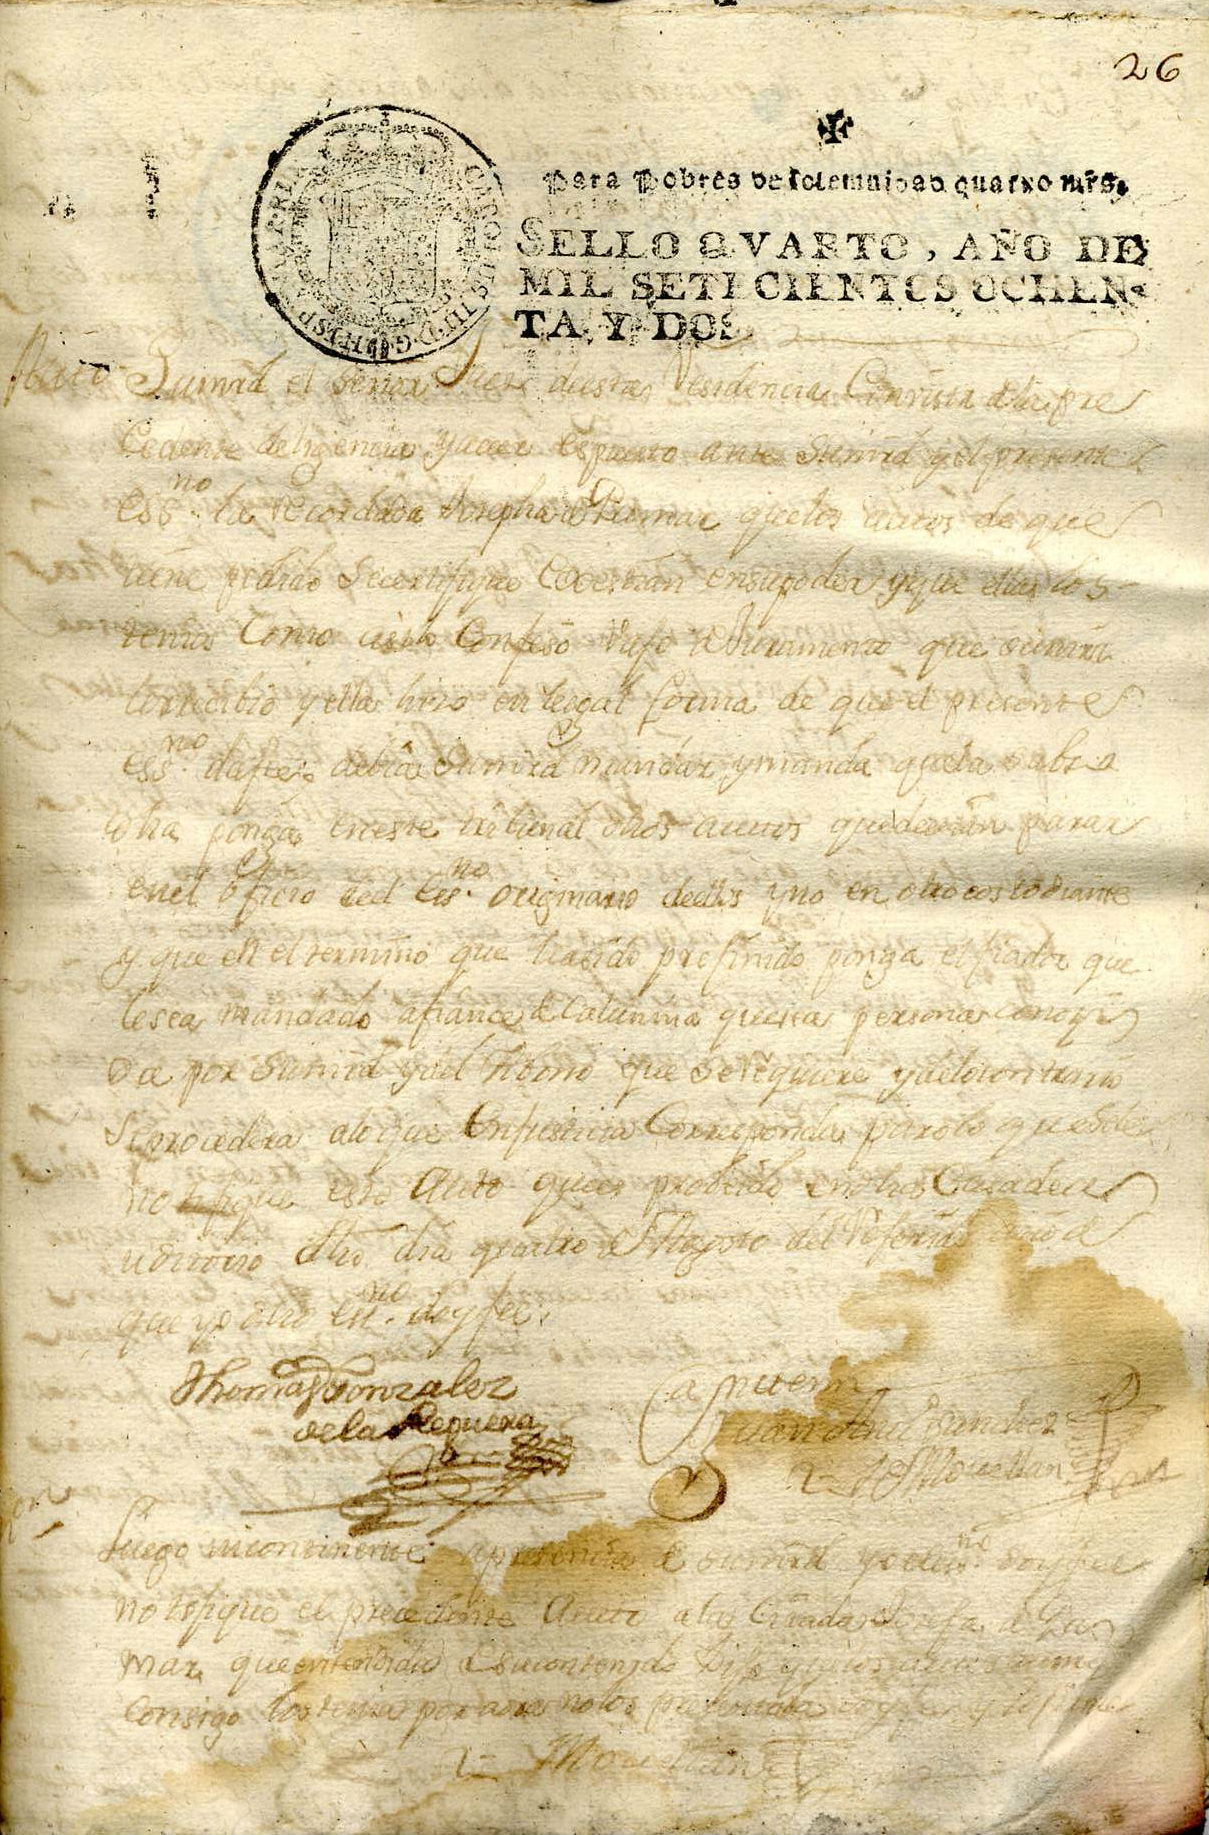 26
Para Pobres de solemnidad quatro mrs.
SELLO QVARTO, AÑO DE
MIL SETECIENTOS OCHEN-
TA Y DOS
CAROLUS III D G HISP
Auto Su mrd el Señor Juez de esta Residencia Con vista de la pre
cedente deligencia y auer espuesto ante Su mrd y el presente
Essno la recordada Josepha de Pumar que los autos de que
tiene pedido Se certifique Coo estan en su poder y que ella los
tenia Como asi lo Confeso vajo de Juramento que su mrd
le recibio y ella hizo en legal forma de que el presente
essno da fee; debia Su mrd mandar y mando que la sobre
dha ponga en este tribunal dhos autos que deverán parar
en el oficio del esno originario de ellos y no en otro costodiante
y que en el termino que ha sido prefinido ponga el fiador que
le sea mandado afiance de Calumnia que sea persona conozi
da por Su mrd y del Abono que Se requiere y de lo contrario
Se procedera a lo que En justicia Corresponda para lo que Se le
notifique este Auto que es probeido en dha Casa de
dho dia quatro de Agosto del Referido año de
que yo dho essno doy fee.
Thomas Gonzalez
de la Reguera
Ante mi
Juan Anto Sanchez
de Movellan
Luego incontinente a presencia de su mrd yo el esno doy fee
notifique el precedente Auto a la Citada Josefa de Pu
mar que entendida de su contenido Dijo que los autos
Consigo los tenia por aora no los presentaba doy fee y lo firme
Movellan